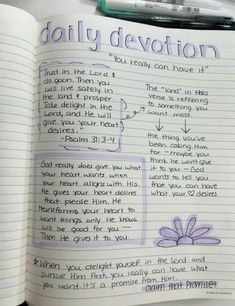 daily devotion
"You really can have it"
Trust in the Lord &
do good. Then you
will live safely in
the land & prosper.
Take delight in the
Lord, and He will
give you your heart
desires."
-Psalm 31:3-4
The "land" in this
verse is referring
to something you
want most.
the thing you've
been asking Him
for - maybe you
think he won't give
it to you - God
wants to tell you
that you can have
what your ♡ desires
God really does give you what
your heart wants when
your heart aligns with His.
He gives your heart desires
that please Him. He
transforms your heart to
want things only He knows
will be good for you -
Then He gives it to you.
When you delight yourself in the Lord and
pursue Him first, you really can have what
you want. It's a promise from Him.
claim that promise!